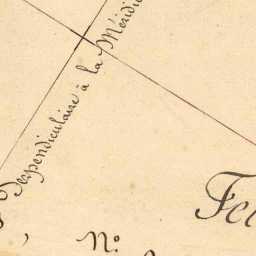 Perpendiculaire à la Méridie
Feu
N°.